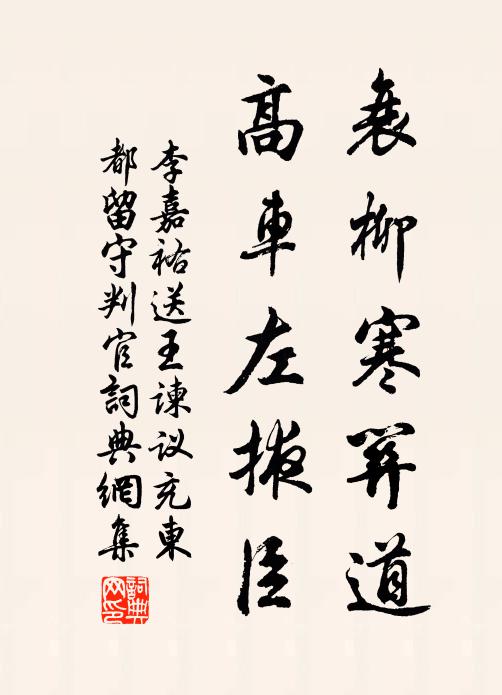 衰柳寒關道
高車左掖臣
李嘉祐送王諫议充東
都留守判官詞典網集
詞典
网印